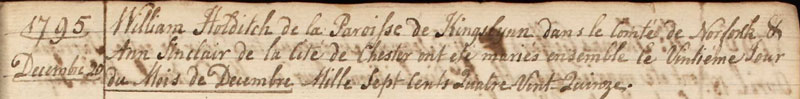 1795
Decembe 20
William Holditch de la Paroisse de Kingslynn dans le Comté de Norforlk &
Ann Sinclair de la Cité de Chester ont été mariés endemble le Vintieme Jour
du Mois de Decembre Mille Sept Cents Quatre Vint Quinze.